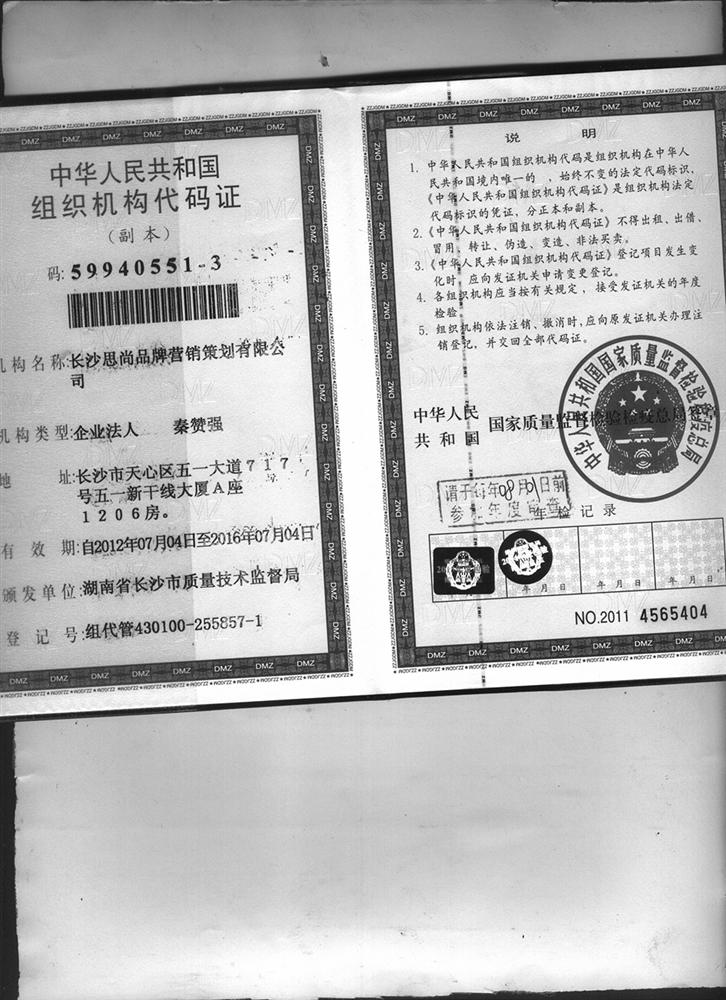 中华人民共和国
组织机构代码证
(副本)
码:59940551-3
机构名称:长沙思尚品牌营销策划有限公
司
机构类型:企业法人 秦赞强
地 址:长沙市天心区五一大道717
号五一新干线大厦A座
1206房。
有效期:自2012年07月04日至2016年07月04日
颁发单位:湖南省长沙市质量技术监督局
登记号:组代管430100-255857-1
说 明
1. 中华人民共和国组织机构代码是组织机构在中华人
民共和国境内唯一的、始终不变的法定代码标识,
《中华人民共和国组织机构代码证》是组织机构法定
代码标识的凭证,分正本和副本。
2.《中华人民共和国组织机构代码证》不得出租、出借、
冒用、转让、伪造、变造、非法买卖。
3.《中华人民共和国组织机构代码证》登记项目发生变
化时,应向发证机关申请变更登记。
4. 各组织机构应当按有关规定,接受发证机关的年度
检验
5. 组织机构依法注销、撤消时,应向原发证机关办理注
销登记,并交回全部代码证。
中华人民
共和国 国家质量监督检验检疫总局
中华人民共和国国家质量监督检验检疫总局
请于每年08月01日前
参 年度
年检记录
年 月 日
年 月 日
年 月 日
NO.2011 4565404